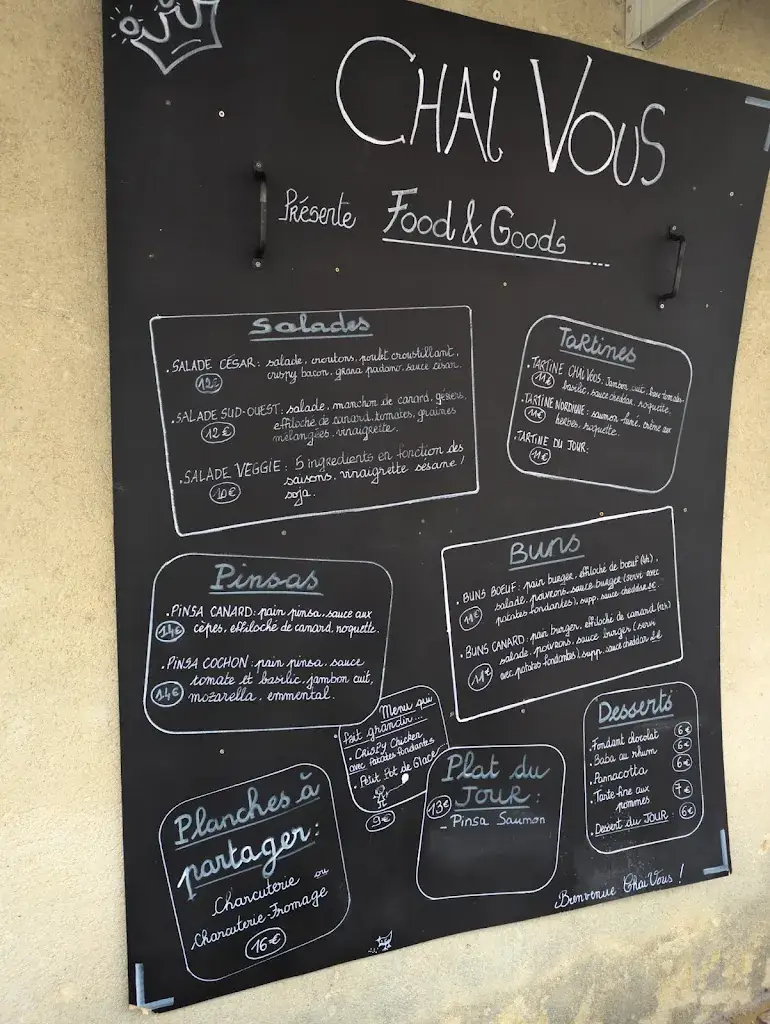 CHAi VOUS
Présente Food & Goods
Salades
. SALADE CÉSAR : salade, croutons, poulet croustillant,
crispy bacon, grana padano, sauce césar.
12€
. SALADE SUD-OUEST : salade, manchon de canard, gésiers,
effiloché de canard, tomates, graines
mélangées, vinaigrette.
12€
. SALADE VEGGIE : 5 ingredients en fonction des
saisons, vinaigrette sésame /
soja.
10€
TaRtines
. TARTINE CHAi VOUS : Jambon cuit, base tomate-
basilic, sauce cheddar, roquette.
11€
. TARTINE NORDIQUE : saumon fumé, crème aux
herbes, roquette.
11€
. TARTINE DU JOUR :
11€
Pinsas
. PiNSA CANARD : pain pinsa, sauce aux
cèpes, effiloché de canard, roquette.
14€
. PiNSA COCHON : pain pinsa, sauce
tomate et basilic, jambon cuit,
mozarella, emmental.
14€
Buns
. BUNS BOEUF : pain burger, effiloché de boeuf
salade, poivrons, sauce burger (servi avec
patates fondantes), supp. sauce cheddar
11€
. BUNS CANARD : pain burger, effiloché de canard
salade, poivrons, sauce burger (servi
avec patates fondantes), supp. sauce cheddar
11€
Menu qui
fait grandir...
. CRiSPY Chicken
avec Patates fondantes
. Petit Pot de Glace
9€
Plat du
JOUR :
13€
- Pinsa Saumon
Desserts
. Fondant chocolat 6€
. Baba au rhum 6€
. Pannacotta 6€
. Tarte fine aux
pommes 7€
. Dessert du JOUR : 6€
Planches à
partager :
Charcuterie ou
Charcuterie-Fromage
16€
Bienvenue Chai Vous !